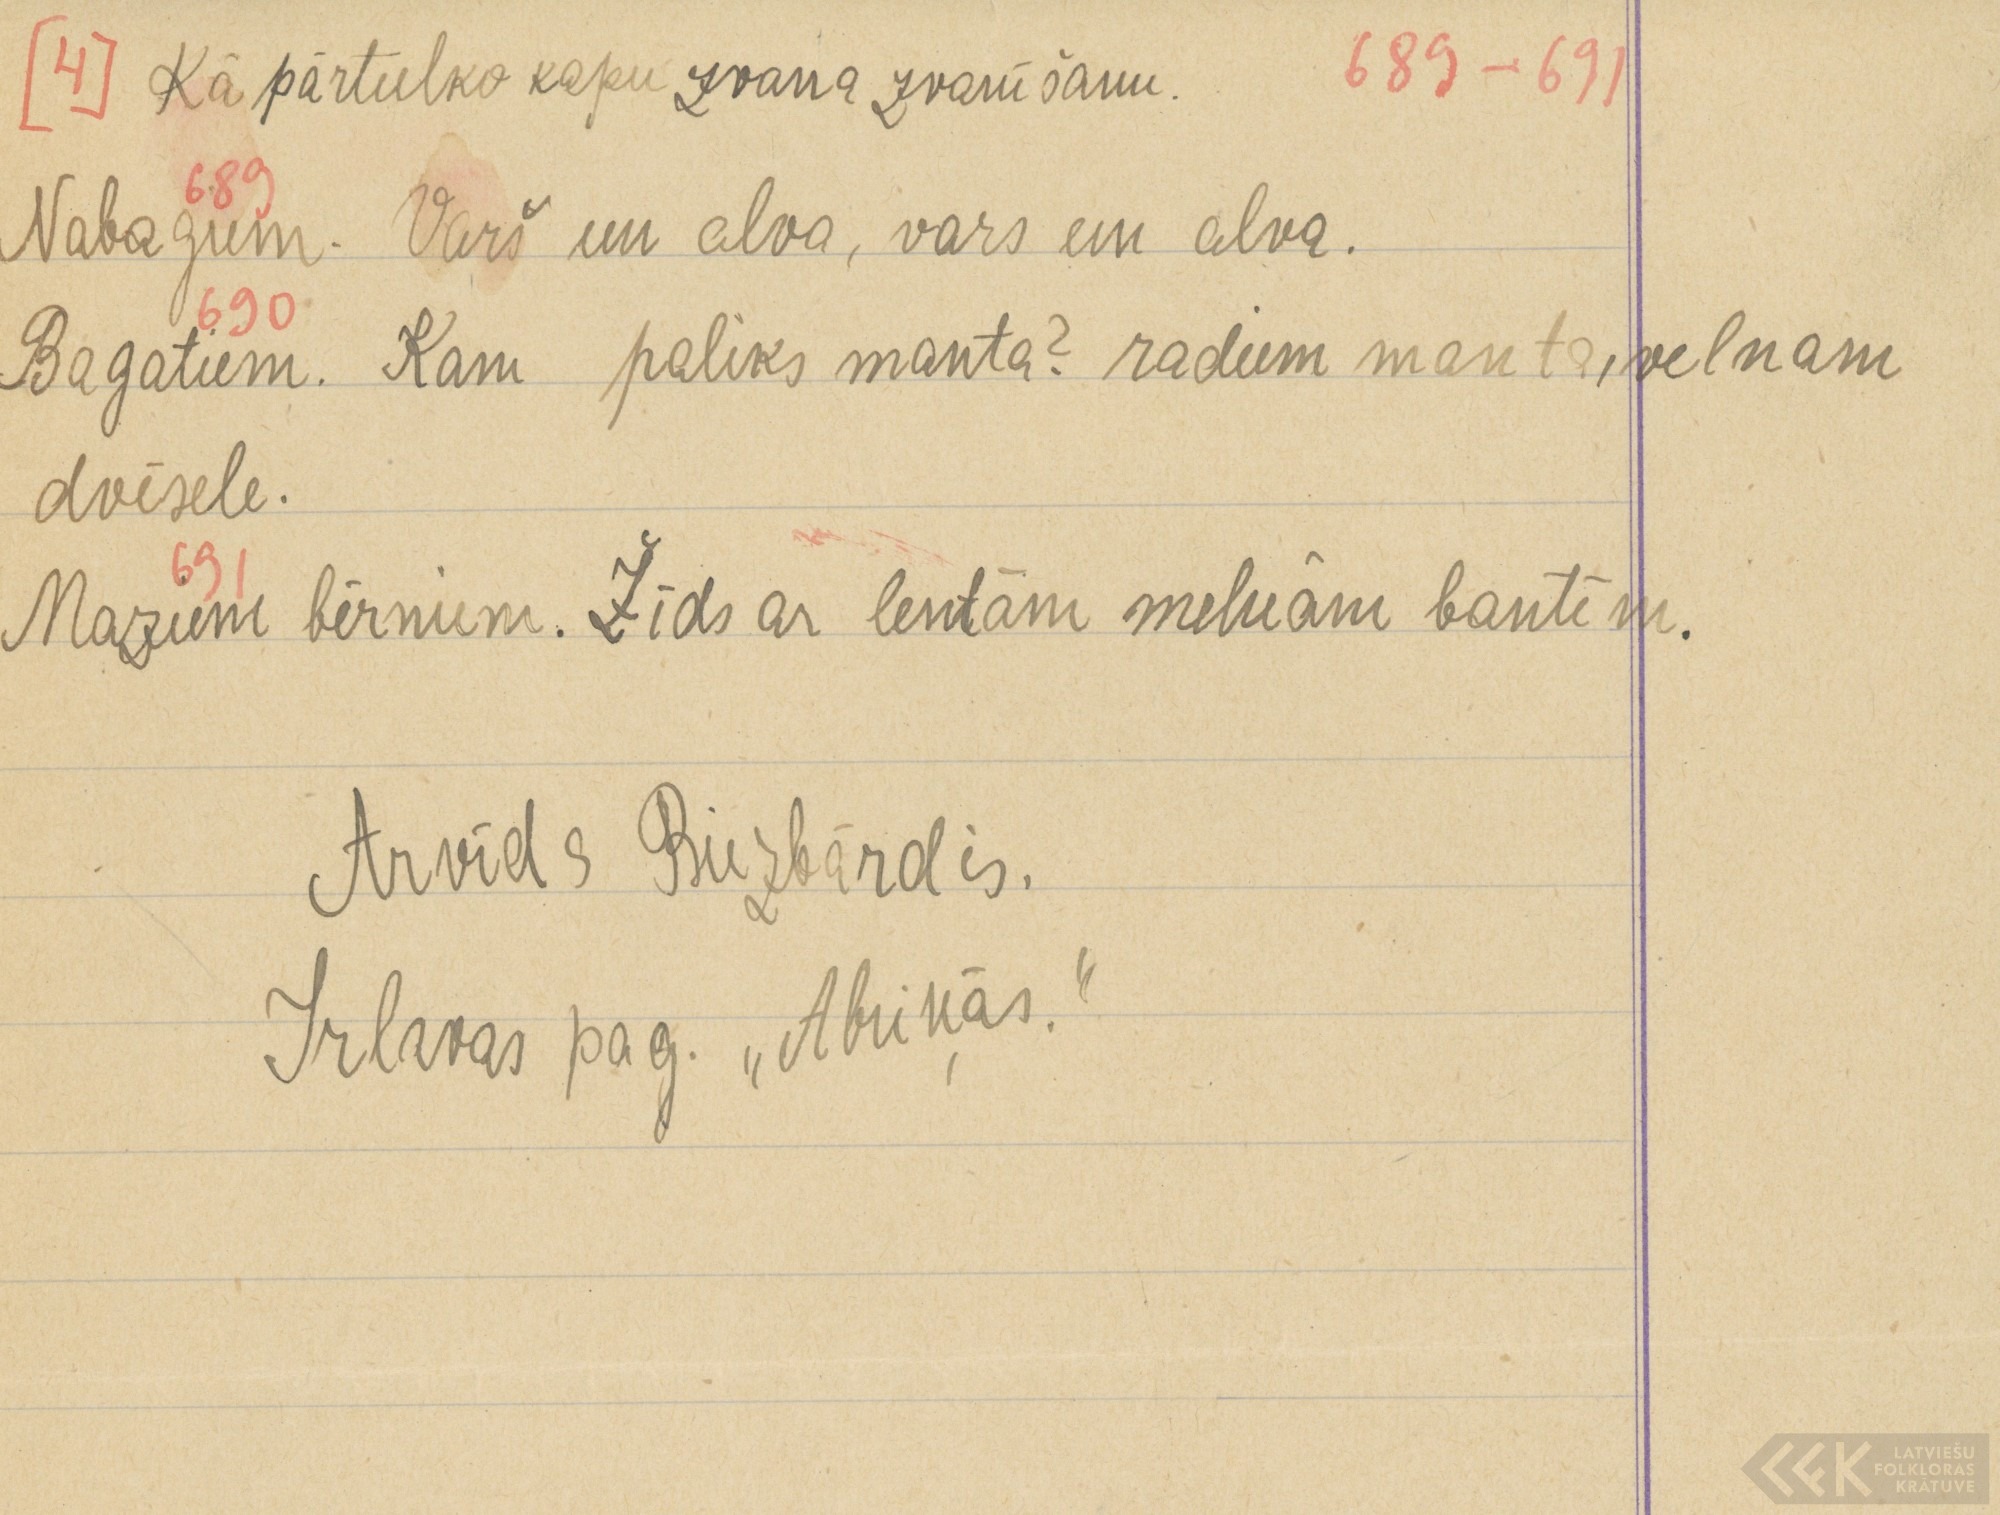 [4] Kā pārtulko kapu zvana zvanīšanu. 689-691
689
Nabagiem. Varš un alva, vars un alva.
690
Bagatiem. Kam paliks manta? radiem manta, velnam
dvēsele.
691
Maziem bērniem. Žīds ar lentām melnām bantēm.
Arvīds Biezbārdis.
Irlavas pag. „Abriņās.“
LATVIEŠU
FOLKLORAS
KRĀTUVE